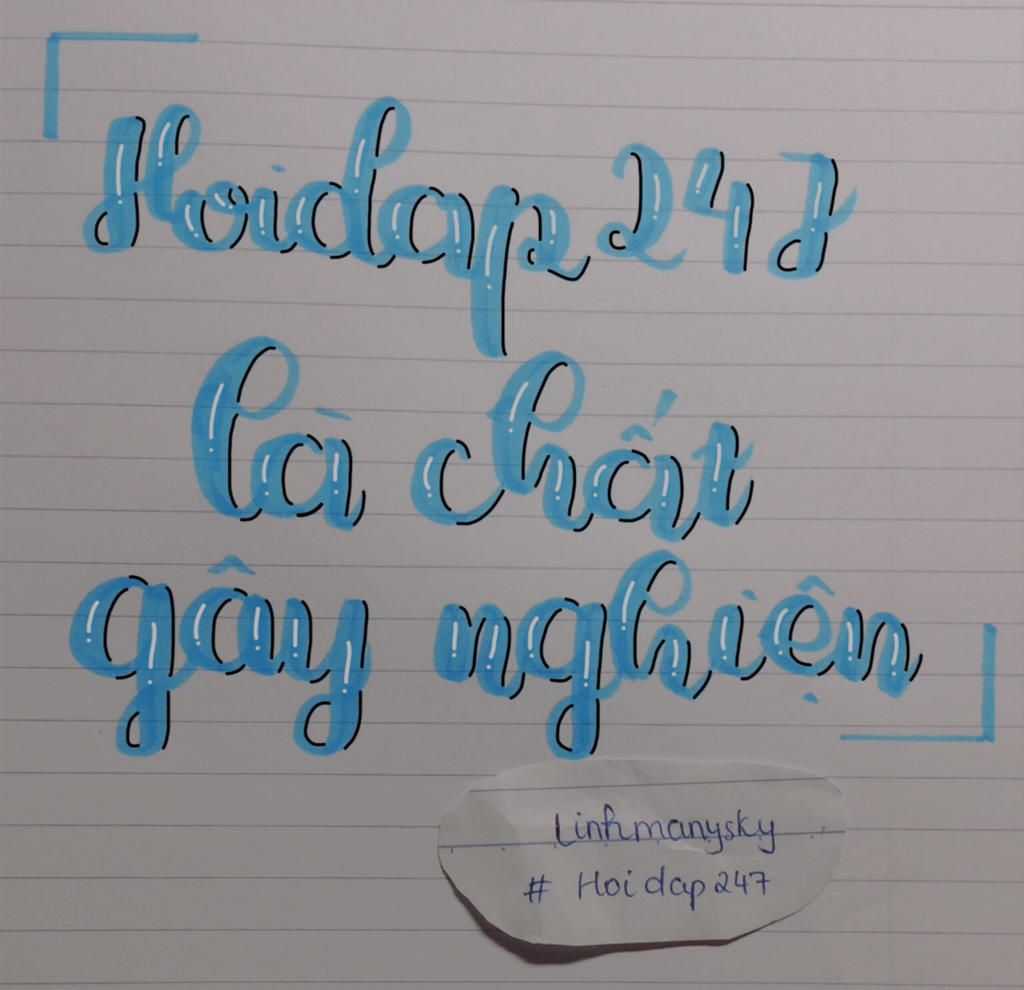 Hoidap 247
là chất
gây nghiện
Linhmanysky
# Hoidap 247